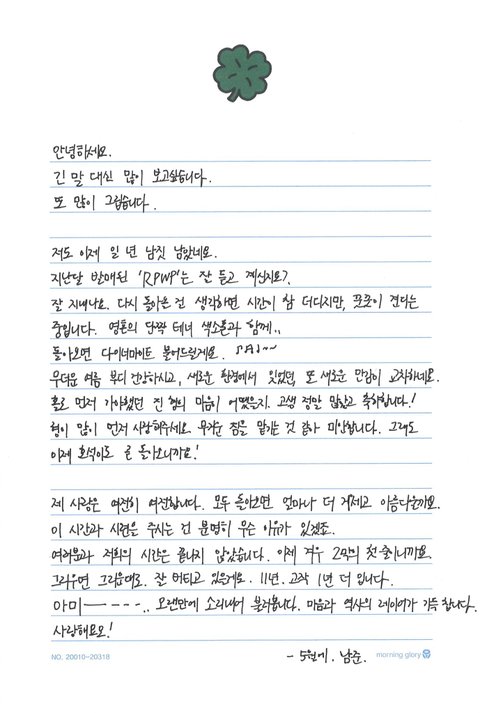 안녕하세요.
긴 말 대신 많이 보고싶습니다.
또 많이 그립습니다.
저도 이제 일 년 남짓 남았네요.
지난달 발매된 'RPWP'는 잘 듣고 계신지요?
잘 지내나요. 다시 돌아올 건 생각하면 시간이 참 더디지만, 꿋꿋이 견디는
중입니다. 영혼의 단짝 테너 색소폰과 함께..
돌아오면 다이너마이트 불어드릴게요. ♪♬♩~~
무더운 여름 부디 건강하시고, 새로운 환경에서 있었던, 또 새로운 만감이 교차하네요.
홀로 먼저 가야했던 진 형의 마음이 어땠을지. 고생 정말 많았고 축하합니다!
형이 많이 먼저 사랑해주세요. 무거운 짐을 맡기는 것 같아 미안합니다. 그래도
이제 호석이도 곧 돌아오니까요!
제 사랑은 여전히 여전합니다. 모두 돌아오면 얼마나 더 거세고 아름다울까요.
이 시간과 시련을 주시는 건 분명히 무슨 이유가 있겠죠.
여러분과 저희의 시간은 끝나지 않았습니다. 이제 겨우 2막의 첫 줄이니까요.
그리우면 그리운대로. 잘 버티고 있을게요. 11년. 고작 1년 더 입니다.
아미ㅡ----.. 오랜만에 소리내어 불러봅니다. 마음과 역사의 레이어가 가득 합니다.
사랑해요오!
- 5월에. 남준.
NO. 20010-20318 morning glory